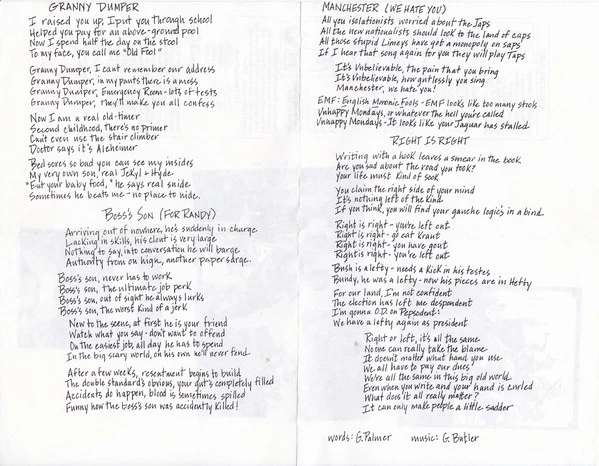 GRANNY DUMPER
I raised you up, I put you through school
Helped you pay for an above-ground pool
Now I spend half the day on the stool
To my face, you call me "Old Fool"
Granny Dumper, I can't remember our address
Granny Dumper, in my pants there is a mess
Granny Dumper, Emergency Room - lots of tests
Granny Dumper, they'll make you all confess
Now I am a real old-timer
Second childhood, there's no primer
Can't even use the stair climber
Doctor says it's Alzheimer
Bed sores so bad you can see my insides
My very own son, real Jekyl & Hyde
"Eat your baby food," he says real snide
Sometimes he beats me - no place to hide.
BOSS'S SON (FOR RANDY)
Arriving out of nowhere, he's suddenly in charge
Lacking in skills, his clout is very large
Nothing to say, into conversation he will barge
Authority from on high, another paper sarge.
Boss's son, never has to work
Boss's son, the ultimate job perk
Boss's son, out of sight he always lurks
Boss's son, the worst kind of a jerk
New to the scene, at first he is your friend
Watch what you say - don't want to offend
On the easiest job, all day he has to spend
In the big scary world, on his own he'll never fend.
After a few weeks, resentment begins to build
The double standard's obvious, your gut's completely filled
Accidents do happen, blood is sometimes spilled
Funny how the boss's son was accidently killed!
MANCHESTER (WE HATE YOU)
All you isolationists worried about the Japs
All the new nationalists should look to the land of caps
All those stupid Limeys have got a monopoly on saps
If I hear that song again for you they will play Taps
It's Unbelievable, the pain that you bring
It's Unbelievable, how gutlessly you sing
Manchester, we hate you!
EMF: English Moronic Fools - EMF looks like too many stools
Unhappy Mondays, or whatever the hell you're called
Unhappy Mondays - It looks like your Jaguar has stalled.
RIGHT IS RIGHT
Writing with a hook leaves a smear in the book
Are you sad about the road you took?
Your life must kind of sook
You claim the right side of your mind
It's nothing left of the kind
If you think, you will find your gauche logic's in a bind.
Right is right - you're left out
Right is right - go eat Kraut
Right is right - you have gout
Right is right - you're left out
Bush is a lefty - needs a kick in his testes
Bundy, he was a lefty - now his pieces are in Hefty
For our land, I'm not confident
The election has left me despondent
I'm gonna O.D. on Pepsodent:
We have a lefty again as president
Right or left, it's all the same
No one can really take the blame
It doesn't matter what hand you use
We all have to pay our dues
We're all the same in this big old world
Even when you write and your hand is curled
What does it all really matter?
It can only make people a little sadder
words: G. Palmer music: G. Butler